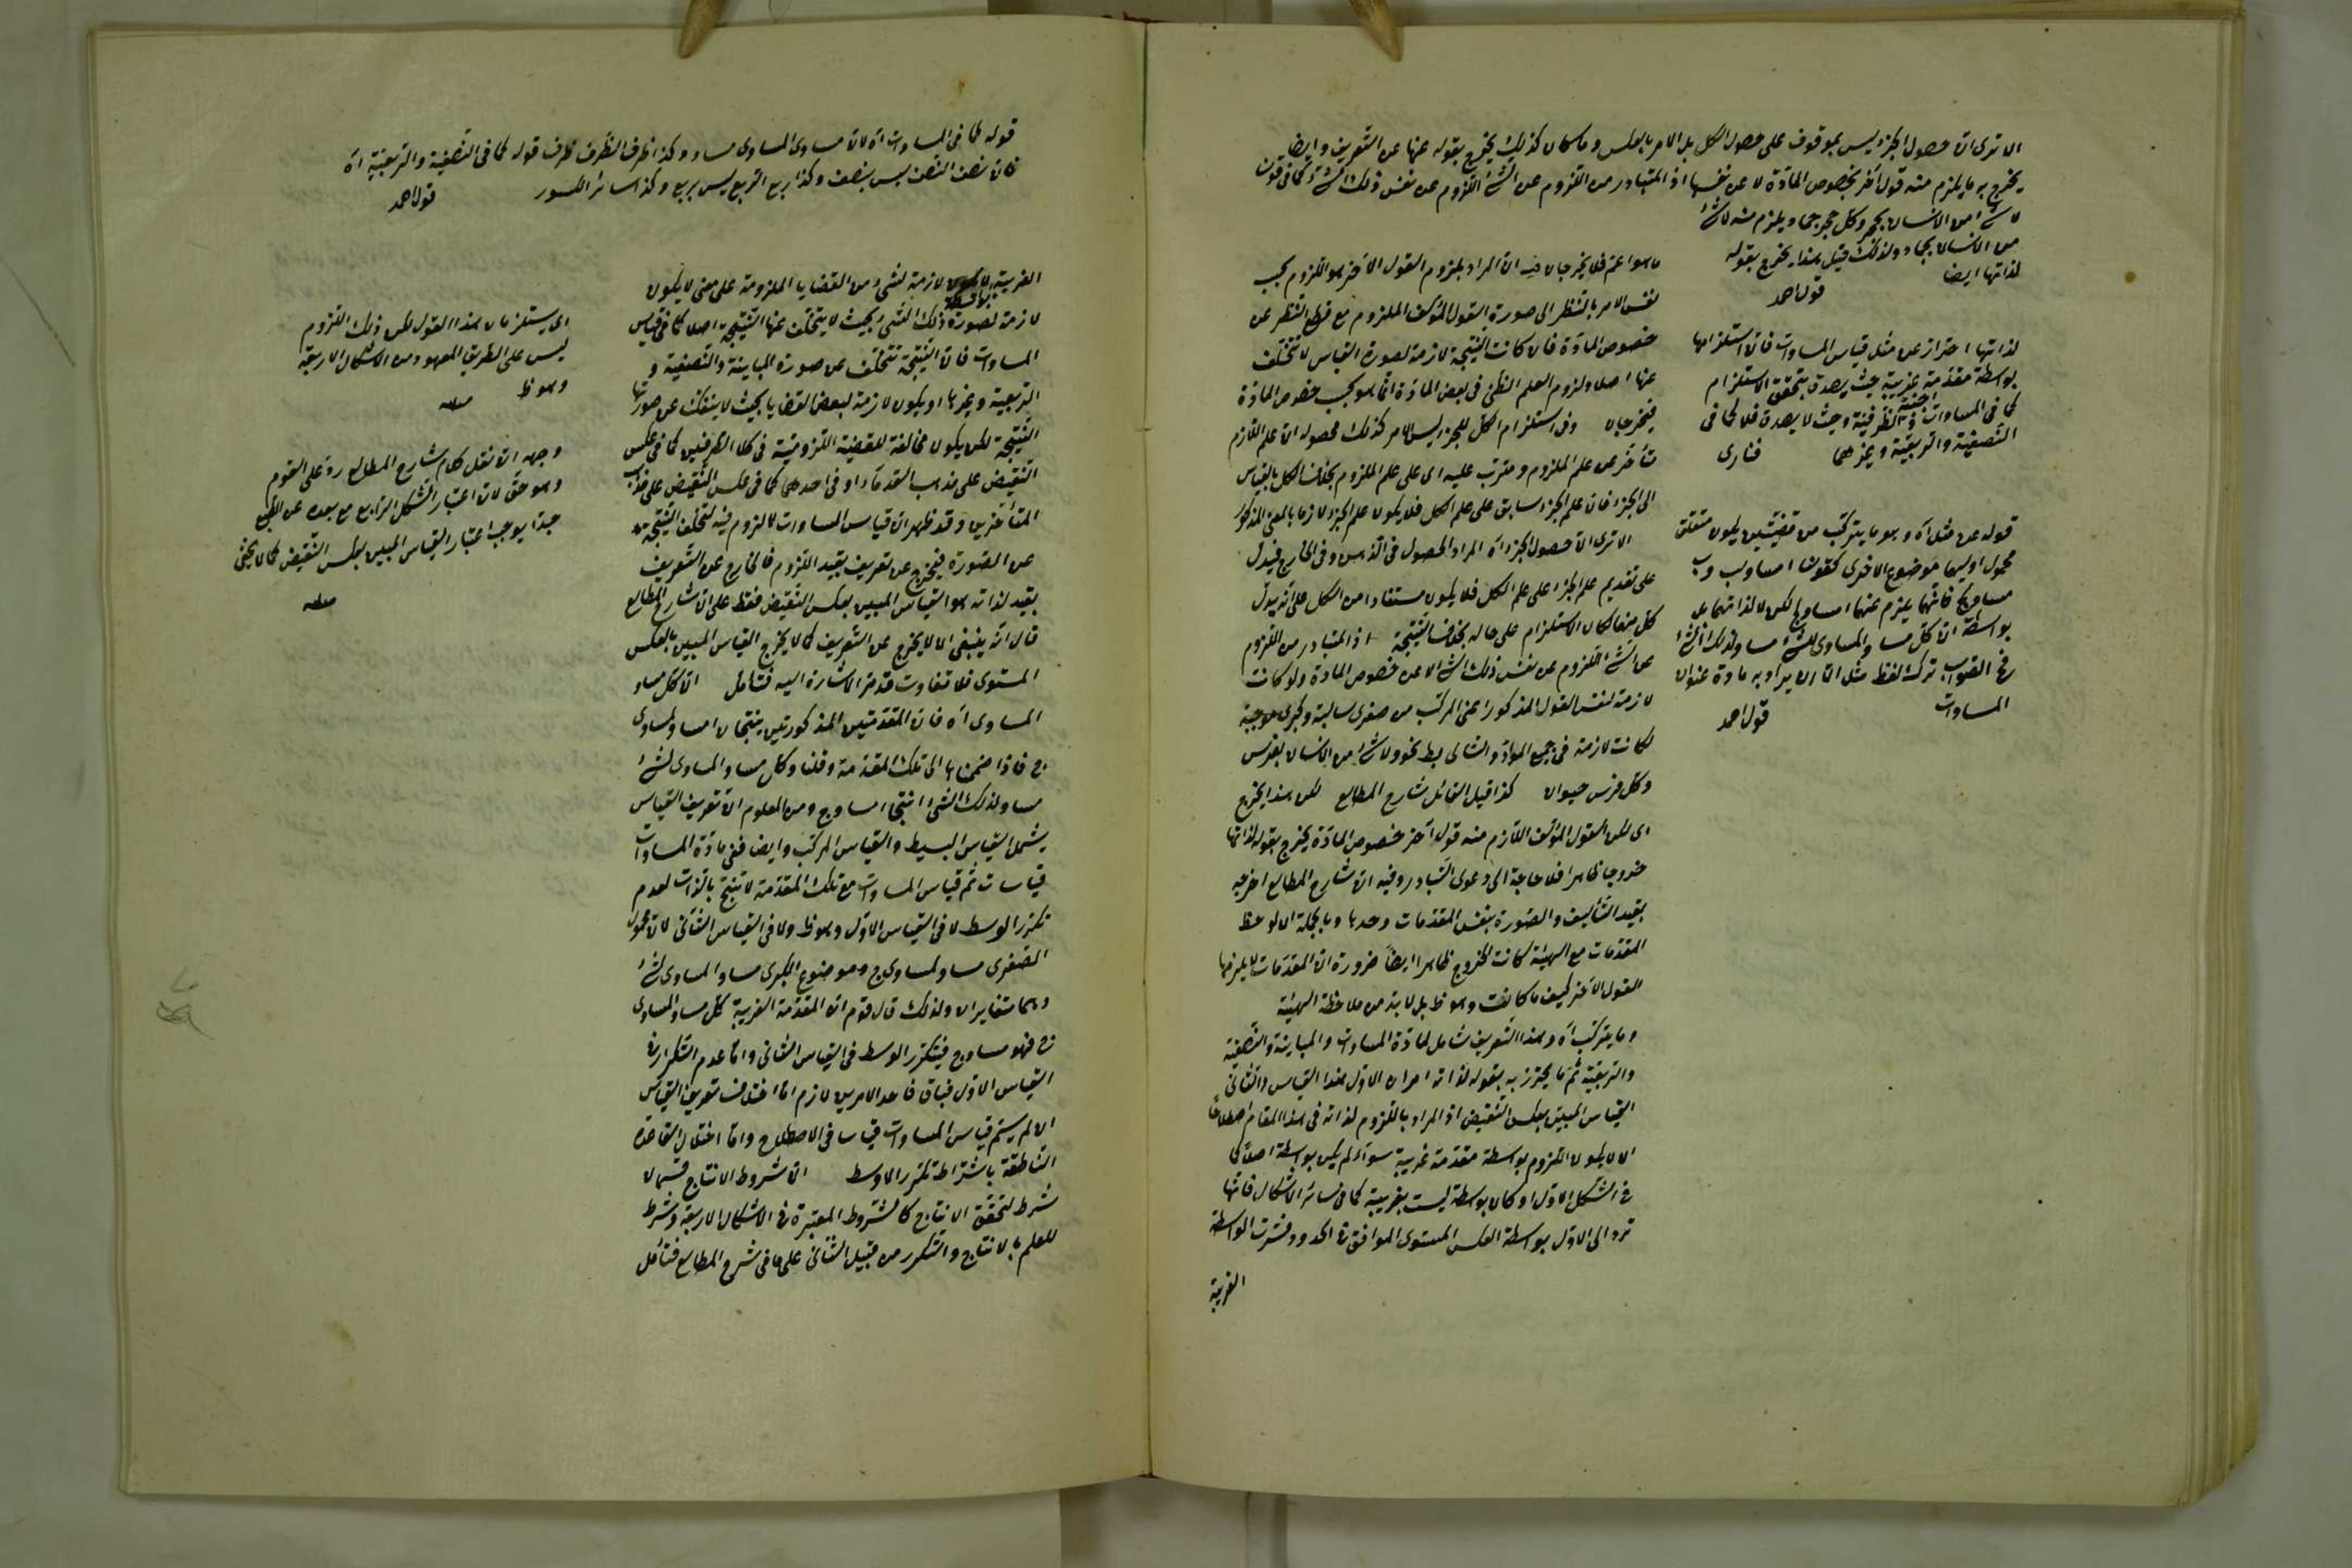 الا ترى ان حصول الجزء ليس بموقوف على حصول الكل بل الامر بالعكس وما كان كذلك يخرج بقوله عنها عن التعريف وايضا
يخرج به ما يلزم منه قول آخر بخصوص المادة لا عن نفسها اذ المتبادر من اللزوم عن الشئ اللزوم عن نفس ذلك الشئ كما فى قولن
لا شئ من الانسان بحجر وكل حجر جماد يلزم منه لا شئ
من الانسان بجماد ولذلك قيل هذا يخرج بقوله
لذاتها ايضا
قول احمد
لذاتها احتراز عن مثل قياس المساوات فان استلزامها
بواسطة مقدمة غريبة حيث يصدق بتحقق الاستلزام
كما فى المساوات والظرفية وحيث لا يصدق فلا كما فى
النصفية والربعية وغيرهما
فنارى
قوله عن مثل آه وهو ما يتركب من قضيتين يكون متعلق
محمول اوليهما موضوع الاخرى كقولنا ا مساو لب وب
مساو لج فانهما يلزم عنهما ا مساو لج لكن لا لذاتهما بل
بواسطة ان كل مساو المساوى للشئ مساو لذلك الشئ
الصواب ترك لفظ مثل الا ان يراد به مادة عنوان
المساوات
قول احمد
ما هو اعم فلا يخرجان فيه ان المراد بلزوم القول الآخر هو اللزوم بحسب
نفس الامر بالنظر الى صورة القول المؤلف الملزوم مع قطع النظر عن
خصوص المادة فان كانت النتيجة لازمة لصورة القياس لا تتخلف
عنها اصلا ولزوم العلم الظنى فى بعض المادة انما هو بحسب خصوص المادة
فيخرجان وفى استلزام الكل للجزء ليس الامر كذلك محصوله ان علم اللازم
متأخر عن علم الملزوم ومترتب عليه اى على علم الملزوم بخلاف الكل بالقياس
الى الجزء فان علم الجزء سابق على علم الكل فلا يكون علم الجزء لازما بالمعنى المذكور
الا ترى ان حصول الجزء آه المراد الحصول فى الذهن وفى الخارج فيدل
على تقديم علم الجزء على علم الكل فلا يكون مستفادا من الكل على انه يدل
كل منهما كان الاستلزام على حاله بخلاف النتيجة اذ المتبادر من اللزوم
عن الشئ اللزوم عن نفس ذلك الشئ لا عن خصوص المادة ولو كانت
لازمة لنفس القول المذكور اعنى المركب من صغرى سالبة وكبرى موجبة
لكانت لازمة فى جميع المواد والتالى بط نحو ولا شئ من الانسان بفرس
وكل فرس حيوان كذا قيل القائل شارح المطالع لكن هذا يخرج
اى لكن القول المؤلف اللازم منه قول آخر بخصوص المادة يخرج بقوله لذاتها
خروجا ظاهرا فلا حاجة الى دعوى التبادر وفيه ان شارح المطالع اخرجه
بقيد التأليف والصورة بنفس المقدمات وحدها وبالجملة ان لوحظ
المقدمات مع الهيئة كانت الخروج ظاهرا ايضا ضرورة ان المقدمات لا يلزمها
القول الآخر كيف ما كانت وهو ظ بل لا بد من ملاحظة الهيئة
وما يتركب آه وهذا التعريف شامل لمادة المساوات والمباينة والنصفية
والربعية ثم ما يحترز به بقوله لذاته امران الاول هذا القياس والثانى
القياس المبين بعكس النقيض اذ المراد باللزوم لذاته فى هذا المقام اصطلاحا
ان لا يكون اللزوم بواسطة مقدمة غريبة سواء لم يكن بواسطة اصلا كما
فى الشكل الاول او كان بواسطة ليست بغريبة كما فى سائر الاشكال فانها
ترد الى الاول بواسطة العكس المستوى الموافق فى الحدود وفسرت الواسطة
الغريبة
قوله كما فى المساوات آه لان مساوى المساوى مساو وكذا ظرف الظرف ظرف قوله كما فى النصفية والربعية آه
فان نصف النصف ليس بنصف وكذا ربع الربع ليس بربع وكذا سائر الكسور
قول احمد
الغريبة بما لا تكون لازمة لشئ من القضايا الملزومة على معنى لا يكون
لازمة لصورة ذلك الشئ بحيث لا يتخلف عنها النتيجة اصلا كما فى قياس
المساوات فان النتيجة تتخلف عن صورة المباينة والنصفية و
الربعية وغيرها او يكون لازمة لبعض القضايا بحيث لا ينفك عن صورتها
النتيجة لكن يكون مخالفة للقضية اللزومية فى كلا الطرفين كما فى عكس
النقيض على مذهب القدماء او فى احدهما كما فى عكس النقيض على مذهب
المتأخرين وقد ظهر ان قياس المساوات لا لزوم فيه لتخلف النتيجة
عن الصورة فيخرج عن تعريف بقيد اللزوم فالخارج عن التعريف
بقيد لذاته هو القياس المبين بعكس النقيض فقط على ان شارح المطالع
قال انه ينبغى ان لا يخرج عن التعريف كما لا يخرج القياس المبين بالعكس
المستوى فلا تفاوت قد مر الاشارة اليه فتأمل ان كل مساو
المساوى آه فان المقدمتين المذكورتين ينتجان ا مساو لمساوى
ج فاذا ضمناها الى تلك المقدمة وقلنا وكل مساو المساوى لشئ
مساو لذلك الشئ انتج ا مساو ج ومن المعلوم ان تعريف القياس
يشمل القياس البسيط والقياس المركب وايضا ففى مادة المساوات
قياسات ثم قياس المساوات مع تلك المقدمة لا ينتج بالذات لعدم
تكرر الوسط لا فى القياس الاول وهو ظ ولا فى القياس الثانى لان محمول
الصغرى مساو لمساوى ج وموضوع الكبرى مساو المساوى لشئ
وهما متغايران ولذلك قال قوم ان المقدمة الغريبة كل مساو لمساوى
ج فهو مساو ج فيتكرر الوسط فى القياس الثانى واما عدم التكرار فى
القياس الاول فباق فاحد الامرين لازم اما اختلاف تعريف القياس
ان لم يسم قياس المساوات قياسا فى الاصطلاح واما اختلال القاعدة
الناطقة باشتراطه تكرر الاوسط ان شروط الانتاج قسمان
شرط لتحقق الانتاج كالشروط المعتبرة فى الاشكال الاربعة وشرط
للعلم بالانتاج والتكرر من قبيل الثانى على ما فى شرح المطالع فتأمل
اى يستلزمان هذا القول لكن ذلك اللزوم
ليس على الطريق المعهود من الاشكال الاربعة
وهو ظ
وجهه ان نقل كلام شارح المطالع رد على القوم
وهو حق لان اعتبار الشكل الرابع مع بعده عن الطبع
جدا يوجب اعتبار القياس المبين بعكس النقيض كما لا يخفى